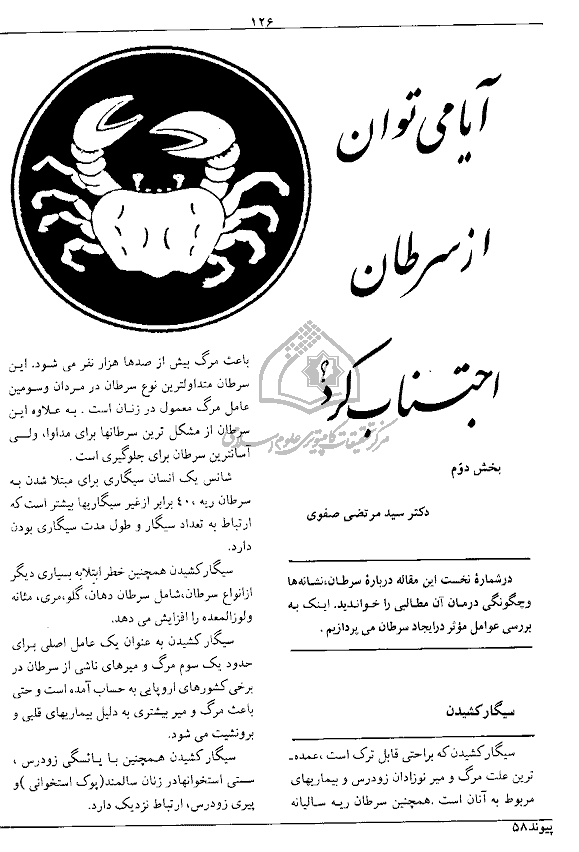 ۱۲۶
آیا می توان
از سرطان
اجتناب کرد؟
بخش دوّم
دکتر سید مرتضی صفوی
درشمارهٔ نخست این مقاله دربارهٔ سرطان،نشانه‌ها
وچگونگی درمان آن مطالبی را خواندید. اینک به
بررسی عوامل مؤثر درایجاد سرطان می پردازیم .
سیگارکشیدن
سیگارکشیدن که براحتی قابل ترک است ،عمده‌ـ
ترین علت مرگ و میر نوزادان زودرس و بیماریهای
مربوط به آنان است .همچنین سرطان ریه سالیانه
باعث مرگ بیش از صدها هزار نفر می شود. این
سرطان متداولترین نوع سرطان در مردان وسومین
عامل مرگ معمول در زنان است . به علاوه این
سرطان از مشکل ترین سرطانها برای مداوا، ولی
آسانترین سرطان برای جلوگیری است .
شانس یک انسان سیگاری برای مبتلا شدن به
سرطان ریه ،۴۰ برابر ازغیر سیگاریها بیشتر است که
ارتباط به تعداد سیگار و طول مدت سیگاری بودن
دارد.
سیگارکشیدن همچنین خطر ابتلابه بسیاری دیگر
ازانواع سرطان،شامل سرطان دهان، گلو،مری، مثانه
ولوزالمعده را افزایش می دهد.
سیگار کشیدن به عنوان یک عامل اصلی برای
حدود یک سوم مرگ و میرهای ناشی از سرطان در
برخی کشورهای اروپایی به حساب آمده است و حتی
باعث مرگ و میر بیشتری به دلیل بیماریهای قلبی و
برونشیت می شود.
سیگار کشیدن همچنین با یائسگی زودرس ،
سستی استخوانهادر زنان سالمند(پوک استخوانی )و
پیری زودرس، ارتباط نزدیک دارد.
مرکز تحقیقات کامپیوتری علوم اسلامی
پیوند۵۸